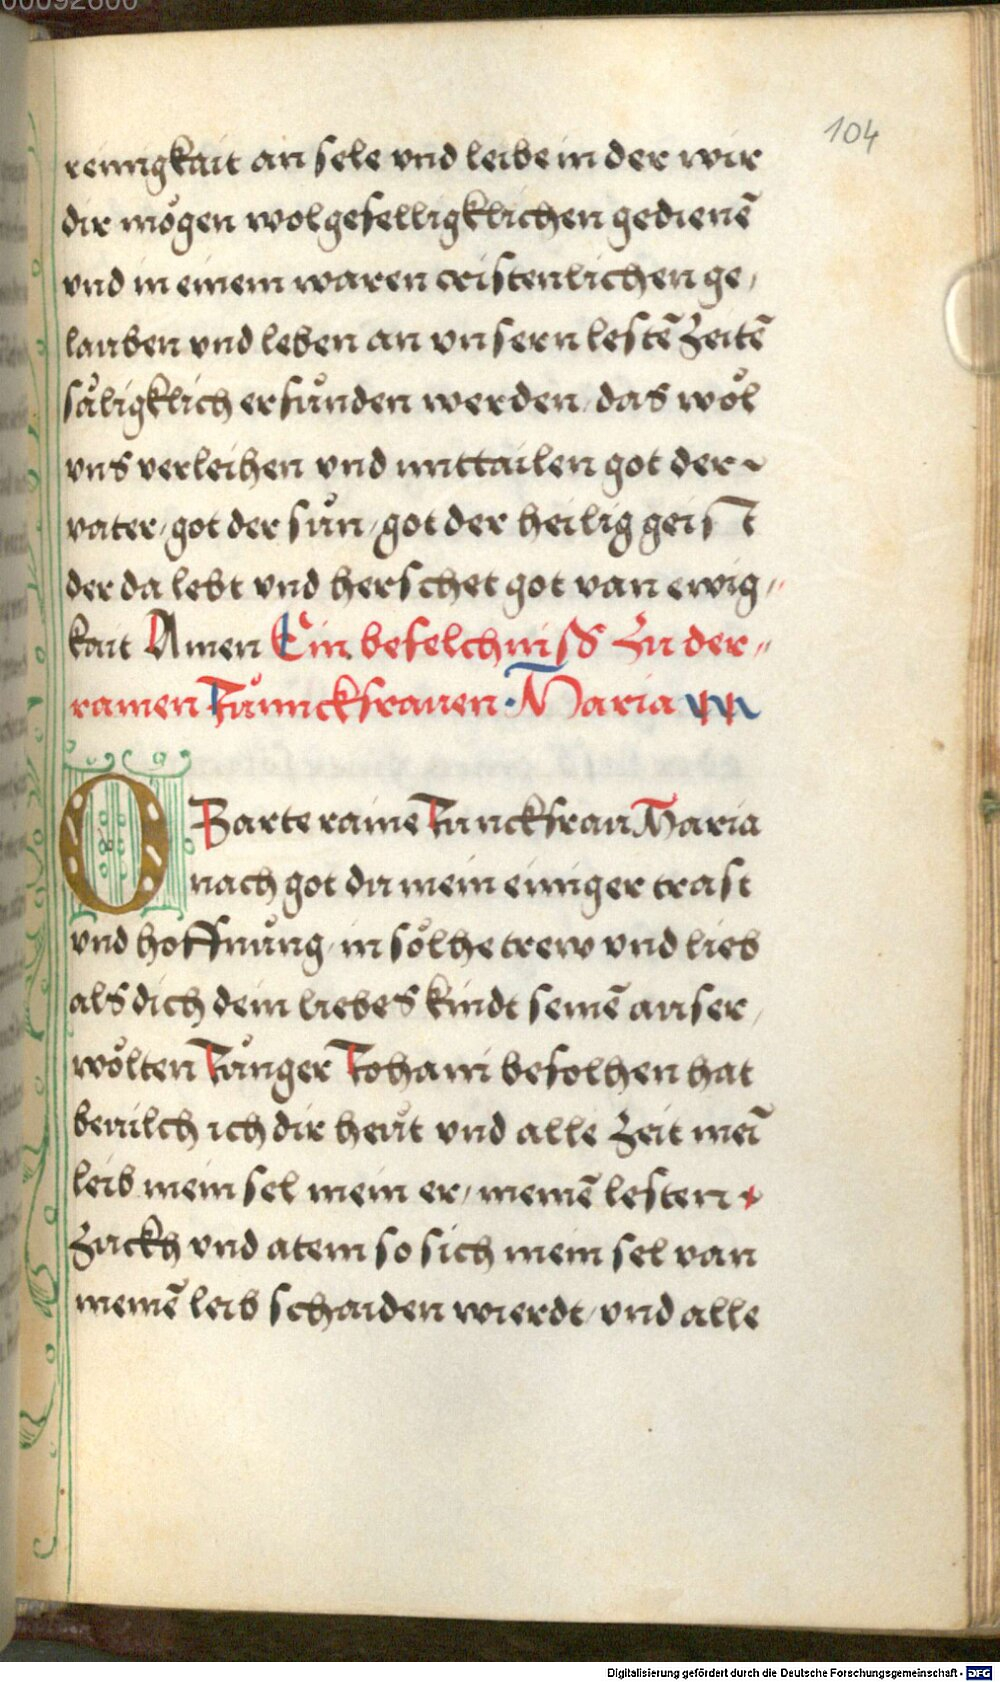 00092600
104
reinigkait an sele vnd leibe in der wir
dir mőgen wolgefelligklichen gedienē
vnd in einem waren cristenlichen ge/
lauben vnd leben an vnsern lestē zeitē
såligklich erfůnden werden / das wöl
vns verleihen vnd mittailen got der ~
vater / got der sůn / got der heilig geist
der da lebt vnd herschet got van ewig //
kait Amen Ein befelchniß zu der //
rainen Jůnnckfrauen · Maria
O Zarte raine Junckfrau Maria
nach got du mein einiger trast
vnd hoffnůng / in sőlhe trew vnd lieb
als dich dein liebes kindt seinē auser /
wőlten Jůnger Johani befolhen hat
beuilch ich dir heut vnd alle zeit mei̅
leib mein sel mein er / meinē lesten
zuckh vnd atem so sich mein sel van
meinē leib schaiden wierdt / vnd alle
Digitalisierung gefördert durch die Deutsche Forschungsgemeinschaft - DFG